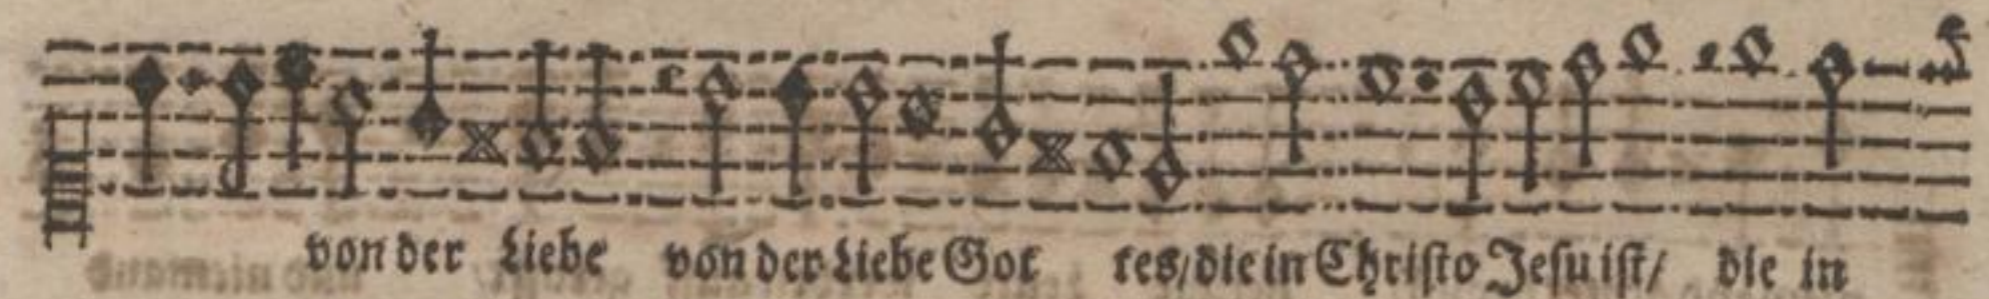 von der Liebe von der Liebe Got tes/ die in Christo Jesu ist/ die in